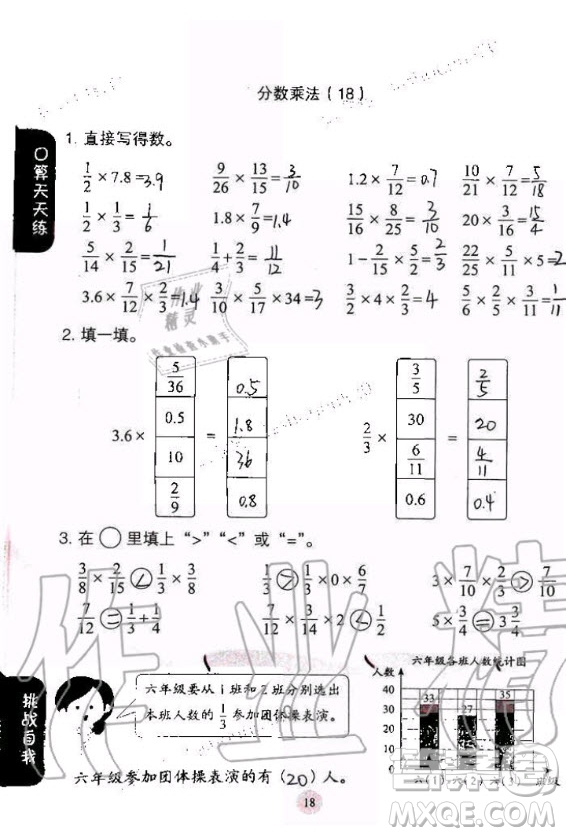 分数乘法(18)
口算天天练
1. 直接写得数。
1/2 × 7.8 = 3.9  9/26 × 13/15 = 3/10  1.2 × 7/12 = 0.7  10/21 × 7/12 = 5/18
1/2 × 1/3 = 1/6  1.8 × 7/9 = 1.4  15/16 × 8/25 = 3/10  20 × 3/16 = 15/4
5/14 × 2/15 = 1/21  1/4 + 2/3 = 11/12  1 − 2/15 × 3/2 =  22/25 × 5/11 × 5 = 2
3.6 × 7/12 × 2/3 = 1.4  3/10 × 5/17 × 34 = 3  3/2 × 4 × 2/3 = 4  5/6 × 2/5 × 3/11 = 1/11
2. 填一填。
3.6 × 5/36 = 0.5  2/3 × 3/5 = 2/5
0.5  1.8  30  20
10  36  6/11  4/11
2/9  0.8  0.6  0.4
3. 在○里填上“>”“<”或“=”。
3/8 × 2/15 < 1/3 × 3/8  1/3 > 1/3 × 0 × 6/7  3 × 7/10 × 2/3 > 7/10
7/12 = 1/3 + 1/4  7/12 × 2 < 2  5 × 3/4 = 3 3/4
挑战自我
六年级要从1班和2班分别选出
本班人数的1/3参加团体操表演。
六年级参加团体操表演的有(20)人。
六年级各班人数统计图
人数
40
30
20
10
0
33
27
35
六(1) 六(2) 六(3) 班级
18
作业精灵
MXQE.COM